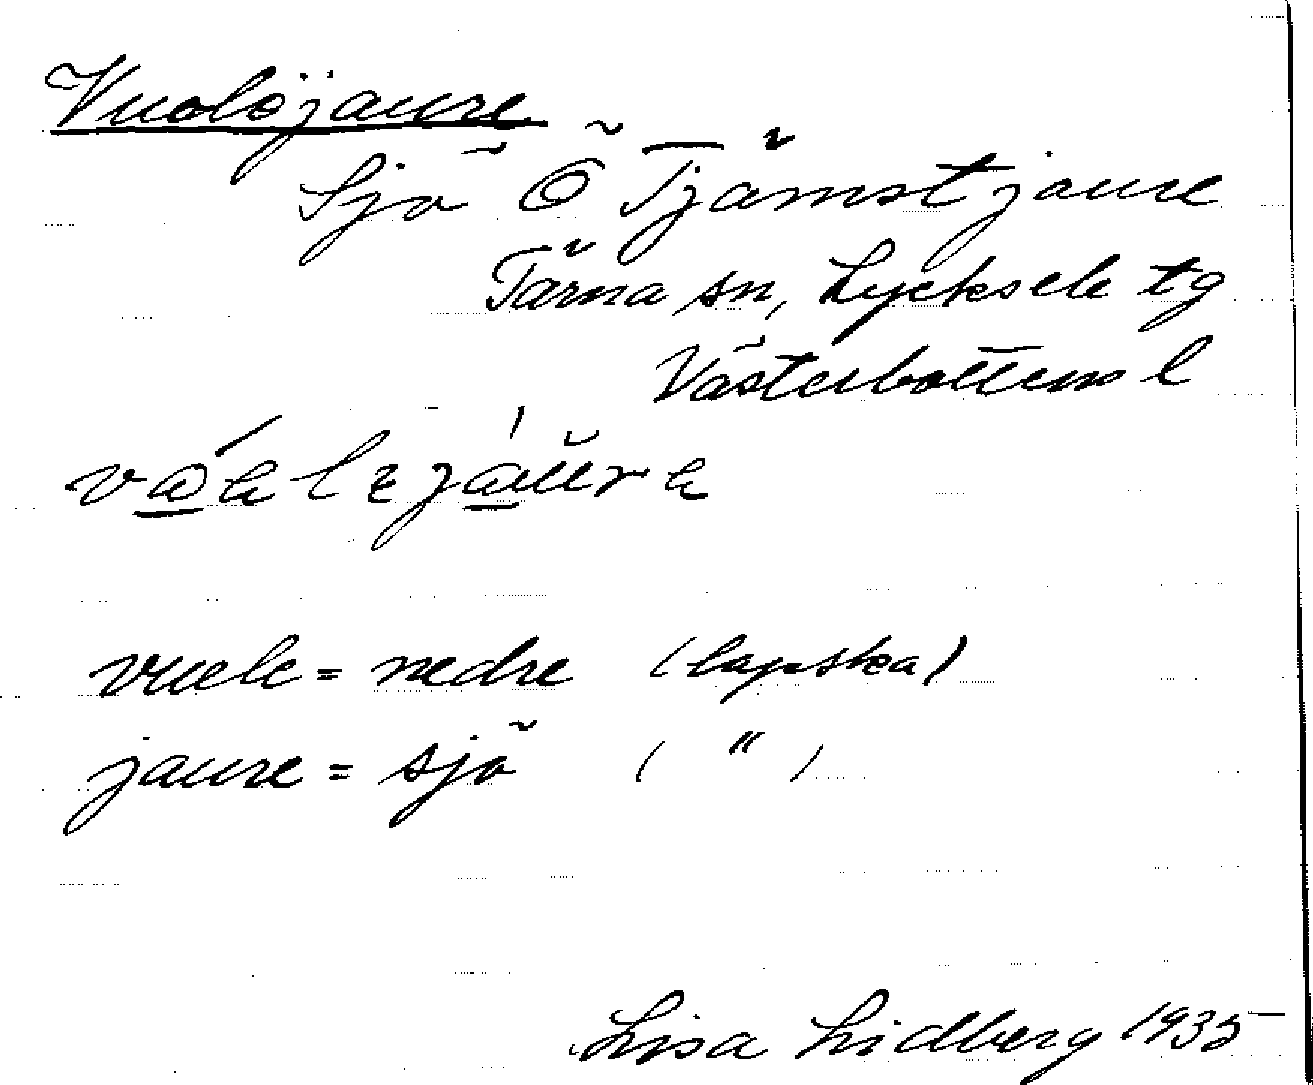 Vuolojaure
Sjö Ö Tjåmstjaure
Tärna sn, Lycksele tg
Västerbottens l
vuele = nedre (lapska)
jaure = sjö ( " )
Lisa Lidberg 1935